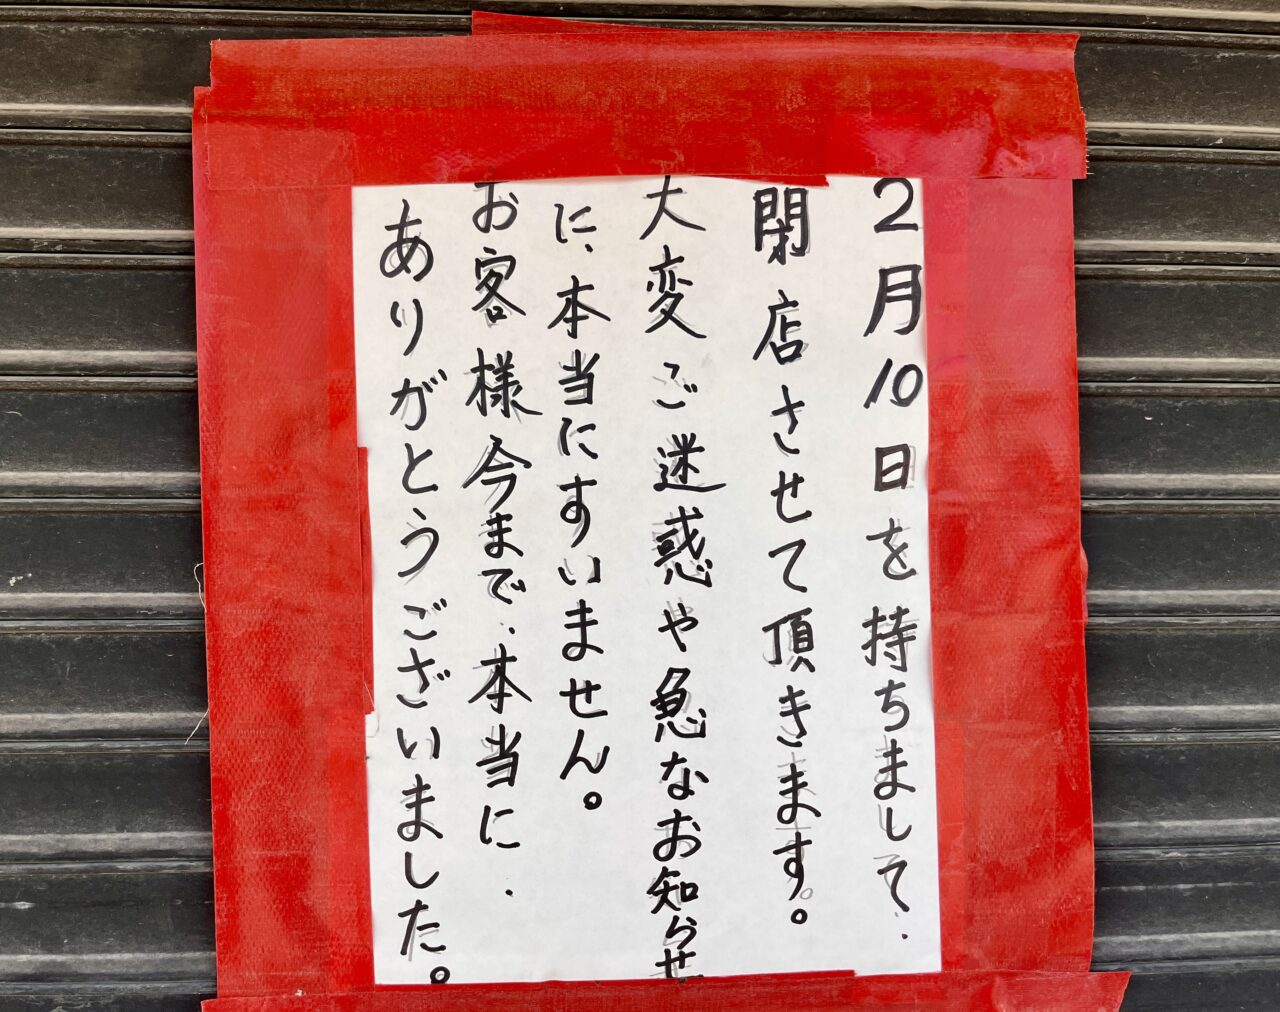 2月10日を持ちまして、
閉店させて頂きます。
大変ご迷惑や急なお知らせ
に、本当にすいません。
お客様今まで、本当に、
ありがとうございました。